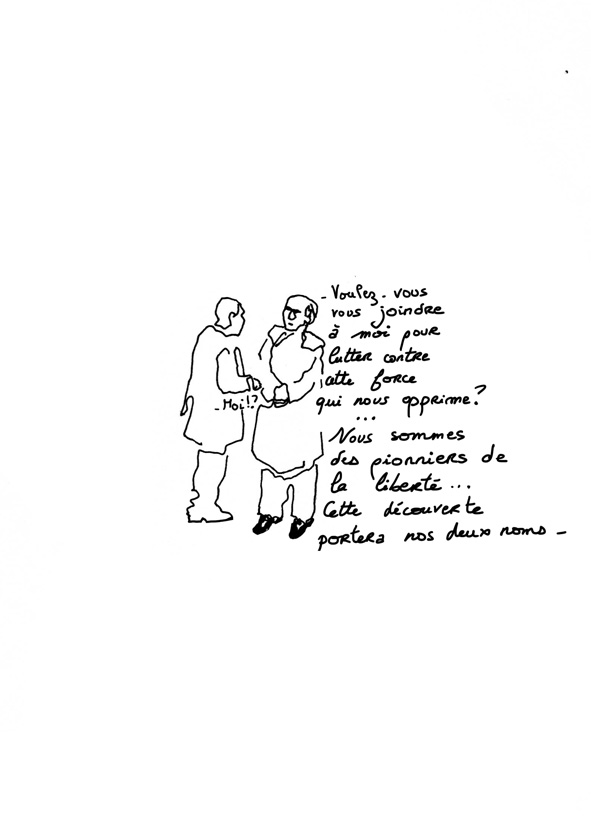 - Voulez-vous
vous joindre
à moi pour
lutter contre
cette force
qui nous opprime?
- Moi!?
...
Nous sommes
des pionniers de
la liberté...
Cette découverte
portera nos deux noms -